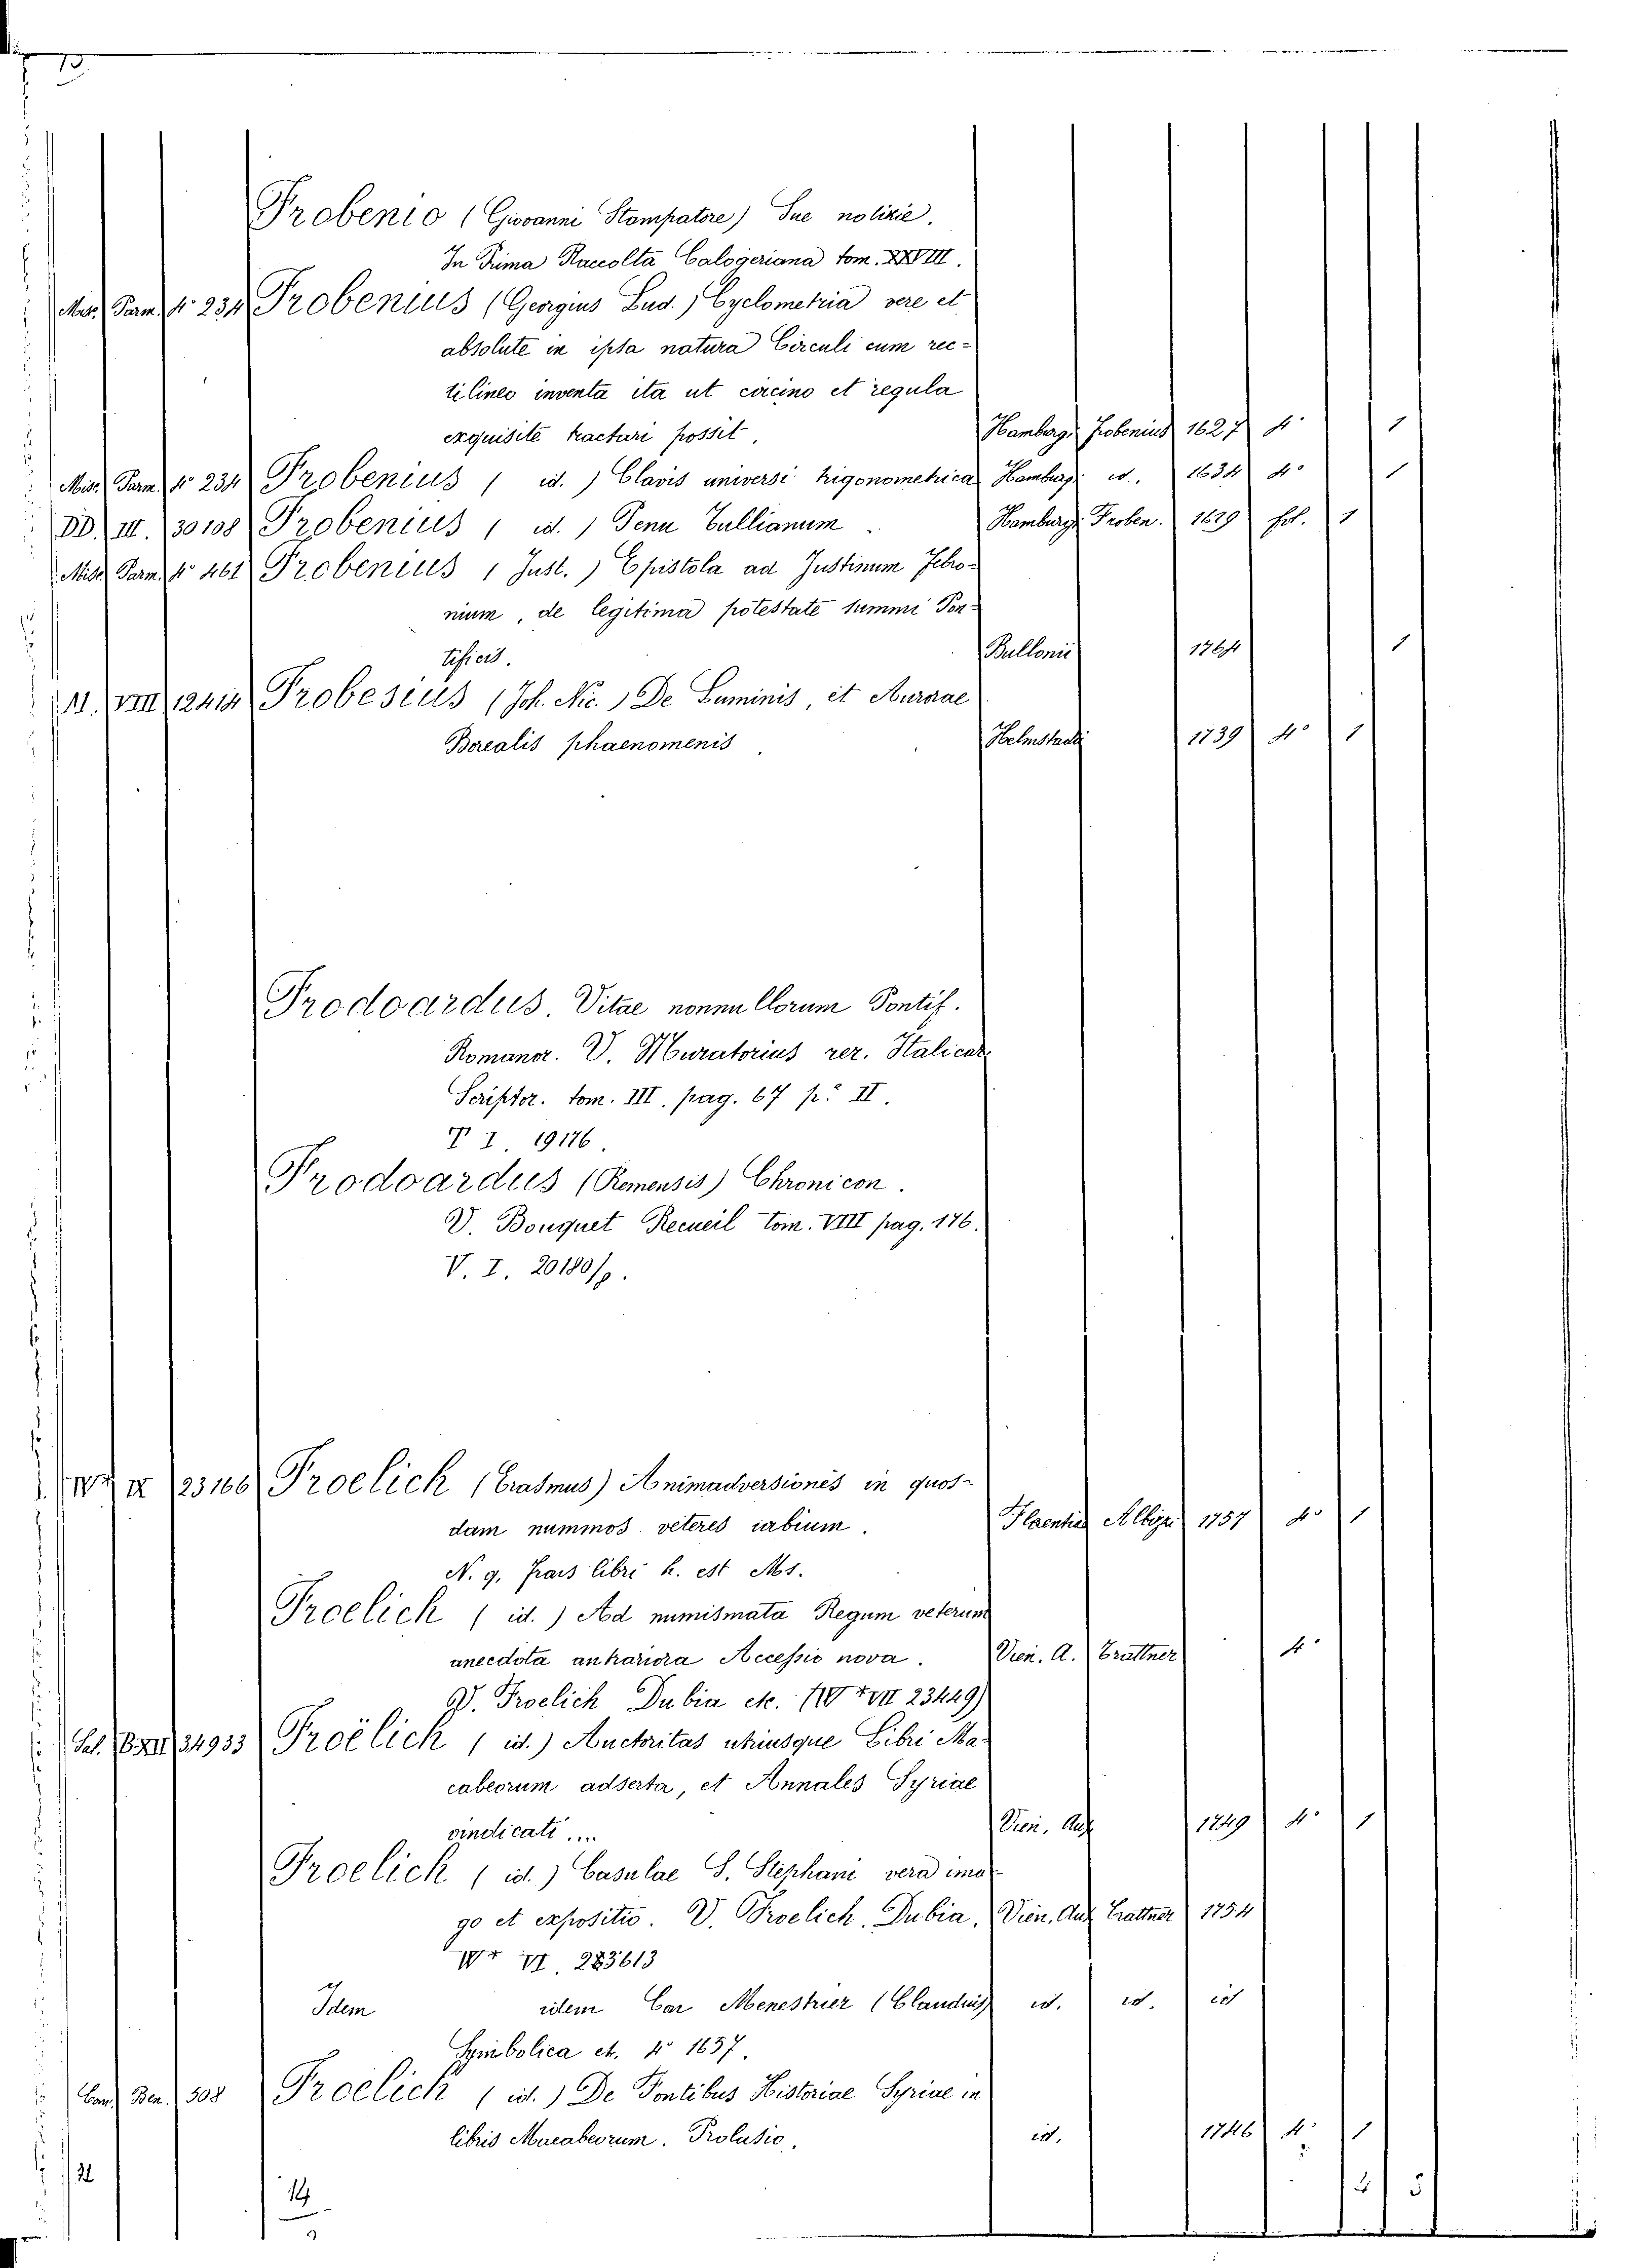 13
Frobenio (Giovanni Stampatore) Sue notizie.
In Prima Raccolta Calogeriana tom. XXVIII.
Misc. Parm. 4º 234 Frobenius (Georgius Lud.) Cyclometria vere et
absolute in ipsa natura Circuli cum rec-
tilineo inventa ita ut circino et regula
exquisite tractari possit. Hamburgi Frobenius 1627 4º 1
Misc. Parm. 4º 234 Frobenius ( id. ) Clavis universi trigonometrica Hamburgi id. 1634 4º 1
DD. III. 30108 Frobenius ( id. ) Penu Tullianum Hamburgi Froben. 1629 fol. 1
Misc. Parm. 4º 461 Frobenius ( Just. ) Epistola ad Justinum Febro-
nium, de legitima potestate summi Pon-
tificis. Bullonii 1764 1
M. VIII 12414 Frobesius (Joh. Nic.) De Luminis, et Aurorae
Borealis phaenomenis Helmstadi 1739 4º 1
Frodoardus. Vitae nonnullorum Pontif.
Romanor. V. Muratorius rer. Italicar.
Scriptor. tom. III. pag. 67 p.e II.
T I 19176.
Frodoardus (Remensis) Chronicon.
V. Bouquet Recueil tom. VIII pag. 176.
V. I. 20180/9.
IX 23166 Froelich (Erasmus) Animadversiones in quos-
dam nummos veteres urbium. Florentiae Albizi 1757 4º 1
N. 9. Frais libri h. est Ms.
Froelich ( id. ) Ad numismata Regum veterum
anecdota aut rariora Accessio nova. Vien. A. Trattner 4º
V. Froelich Dubia etc. VII 23449)
Sal. B XII 34933 Froëlich ( id. ) Auctoritas utriusque Libri Ma-
cabeorum adserta, et Annales Syriae
vindicati .... Vien. Aus 1749 4º 1
Froelich ( id. ) Casulae S. Stephani vera ima-
go et expositio. V. Froelich. Dubia. Vien. Aus Trattner 1754
VI. 283613
Idem idem Car Menestrier (Claudius) id. id. id
Symbolica et. 4º 1657.
Cam. Ben. 508 Froëlich ( id. ) De Fontibus Historiae Syriae in
libris Macabeorum. Prolusio. id. 1746 4º 1
21
14
2 5